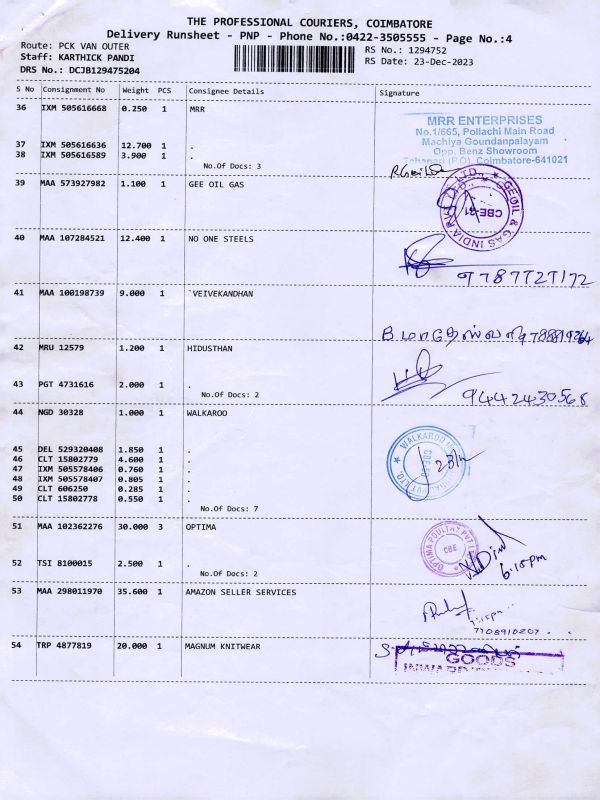 THE PROFESSIONAL COURIERS, COIMBATORE
Delivery Runsheet - PNP - Phone No.:0422-3505555 - Page No.:4
Route: PCK VAN OUTER
RS No.: 1294752
Staff: KARTHICK PANDI
RS Date: 23-Dec-2023
DRS No.: DCJB129475204
S No Consignment No Weight PCS Consignee Details Signature
36 IXM 505616668 0.250 1 MRR
MRR ENTERPRISES
No.1/665, Pollachi Main Road
Machiya Goundanpalayam
Opp. Benz Showroom
(P.O), Coimbatore-641021
37 IXM 505616636 12.700 1 .
38 IXM 505616589 3.900 1 .
No.Of Docs: 3
39 MAA 573927982 1.100 1 GEE OIL GAS
GEOIL & GAS INDIA PVT. LTD.,
CBE-21
40 MAA 107284521 12.400 1 NO ONE STEELS
9787727172
41 MAA 100198739 9.000 1 `VEIVEKANDHAN
42 MRU 12579 1.200 1 HIDUSTHAN
43 PGT 4731616 2.000 1 .
No.Of Docs: 2
9442430568
44 NGD 30328 1.000 1 WALKAROO
WALKAROO
45 DEL 529320408 1.850 1 .
46 CLT 15802779 4.600 1 .
47 IXM 505578406 0.760 1 .
48 IXM 505578407 0.805 1 .
49 CLT 606250 0.285 1 .
50 CLT 15802778 0.550 1 .
No.Of Docs: 7
51 MAA 102362276 30.000 3 OPTIMA
OPTIMA POULTRY PVT LTD
CBE
6:15pm
52 TSI 8100015 2.500 1 .
No.Of Docs: 2
53 MAA 298011970 35.600 1 AMAZON SELLER SERVICES
7:15pm
7708910207
54 TRP 4877819 20.000 1 MAGNUM KNITWEAR
GOODS